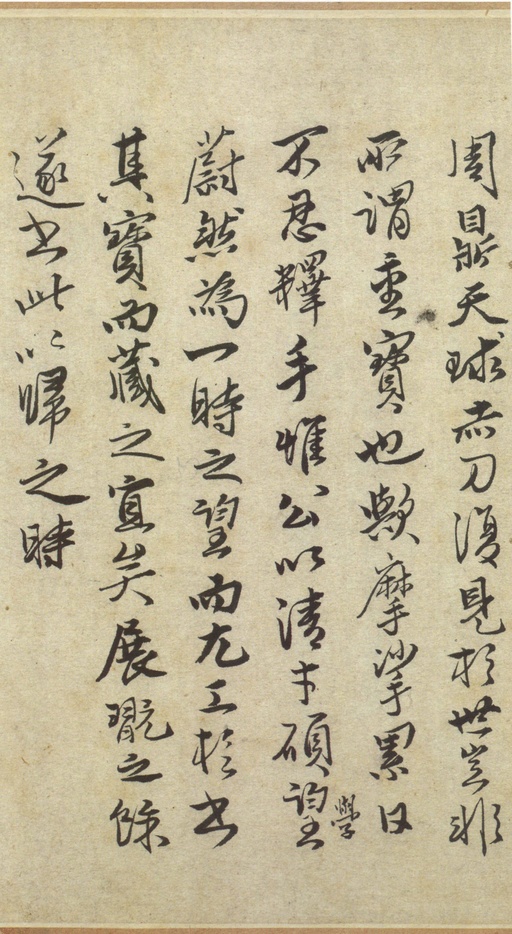 周鼎天球赤刀復見於世豈非
所謂重寶也歟摩挲累日
不忍釋手惟公以清才碩望
學
蔚然為一時之望而尤工於書
其寶而藏之宜矣展翫之餘
遂書此以歸之時